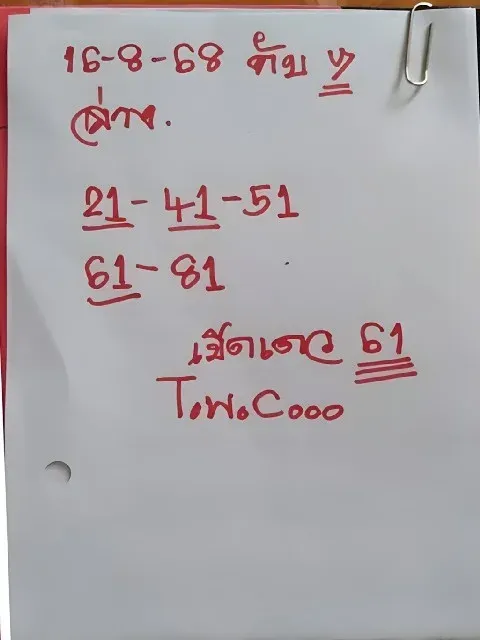 16-8-68 ทับ ๆ
ล่าง.
21-41-51
61-81
เช็ดเดว 61
T.W.C...